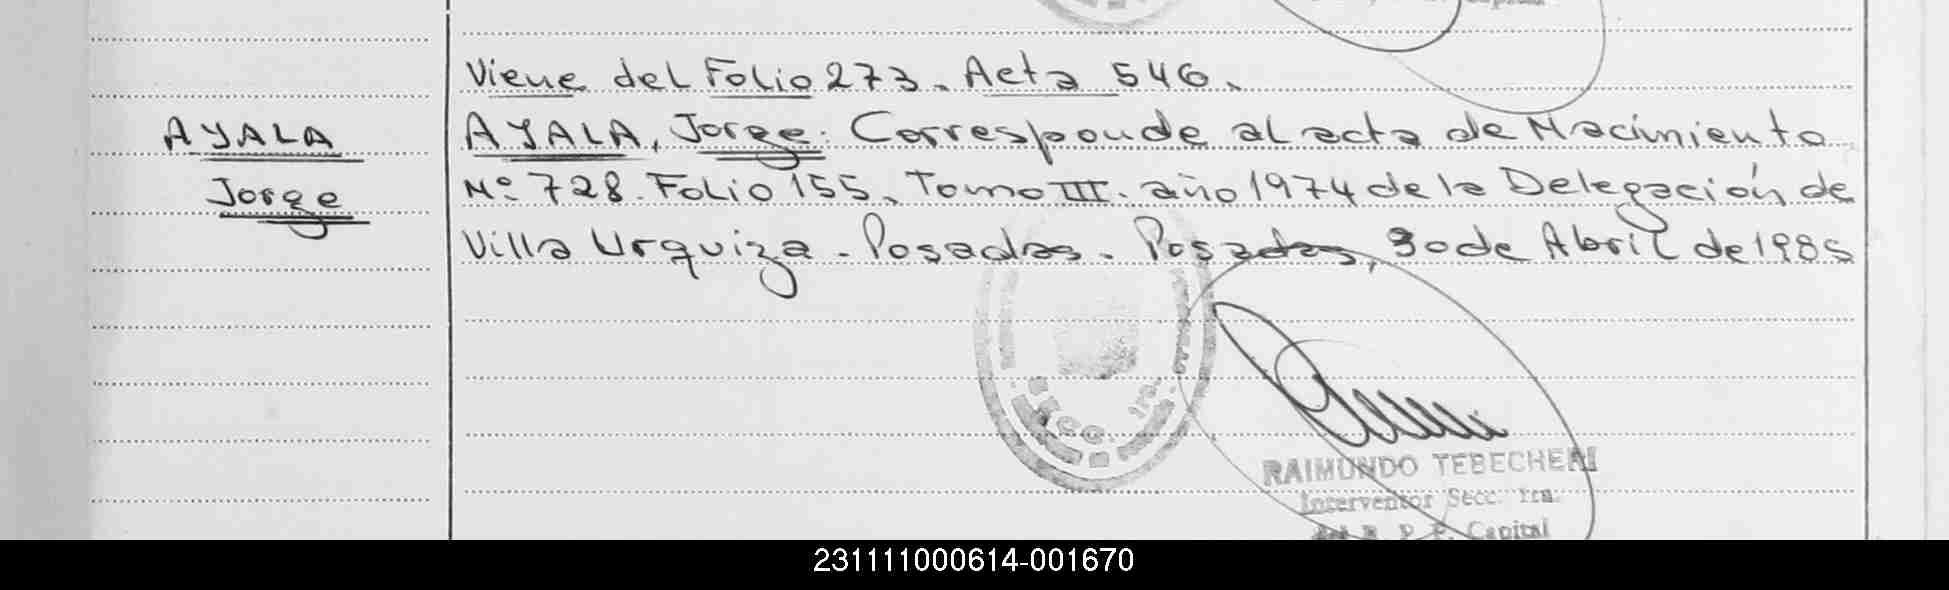 Viene del Folio 273. Acta 546.
AYALA
Jorge
AYALA, Jorge: Corresponde al acta de Nacimiento
Nº 728. Folio 155. Tomo III. año 1974 de la Delegación de
Villa Urquiza. Posadas. Posadas, 30 de Abril de 1985
SECC. 1ra.
RAIMUNDO TEBECHERI
Interventor Secc. 1ra.
R. P. P. Capital
231111000614-001670